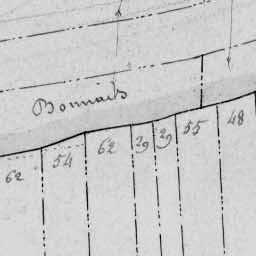 Bonnais
62 54 62 29 29 55 48